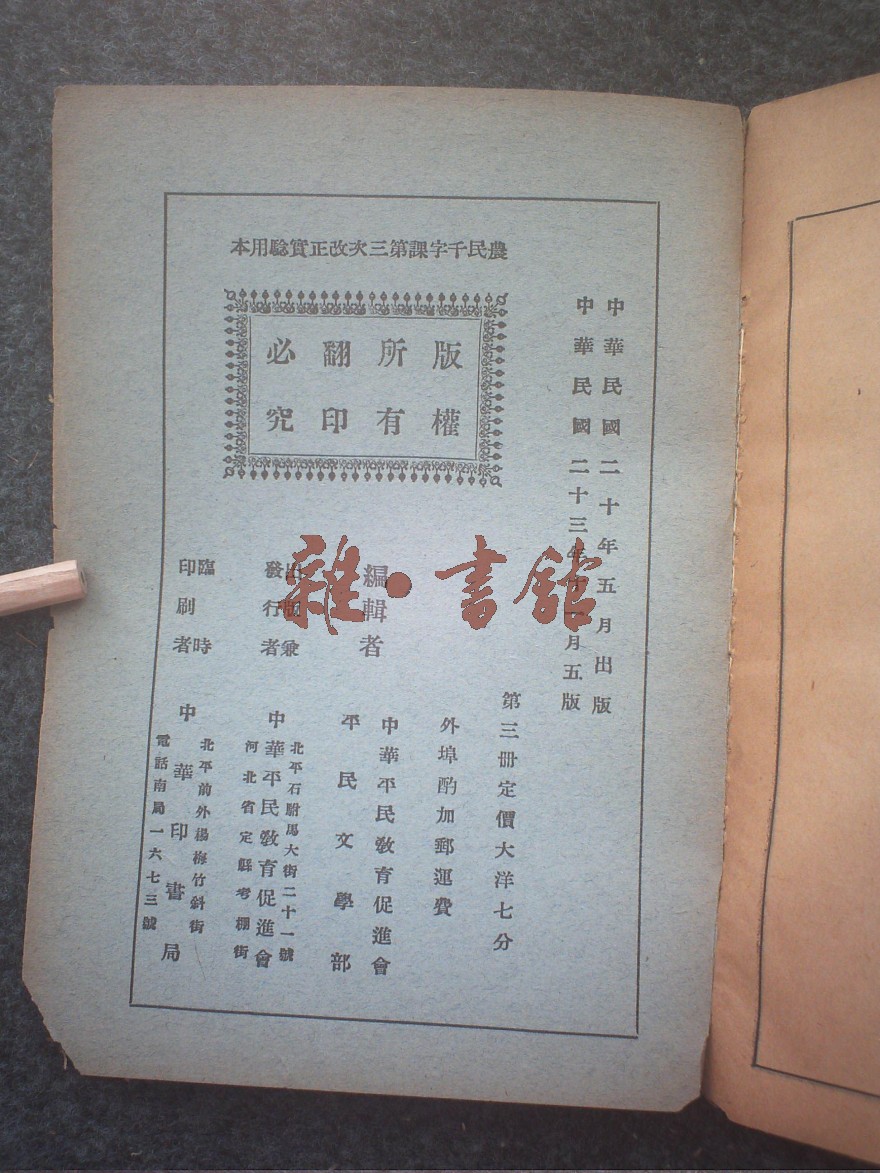 農民千字課第三次改正實驗用本
中華民國二十年五月出版
中華民國二十三年十一月五版
版權
所有
翻印
必究
第三冊定價大洋七分
外埠酌加郵運費
編輯者
中華平民教育促進會
平民文學部
出版兼
發行者
北平石駙馬大街二十一號
中華平民教育促進會
河北省定縣考棚街
臨時
印刷者
北平前外楊梅竹斜街
中華印書局
電話南局一六七三號
雜·書館